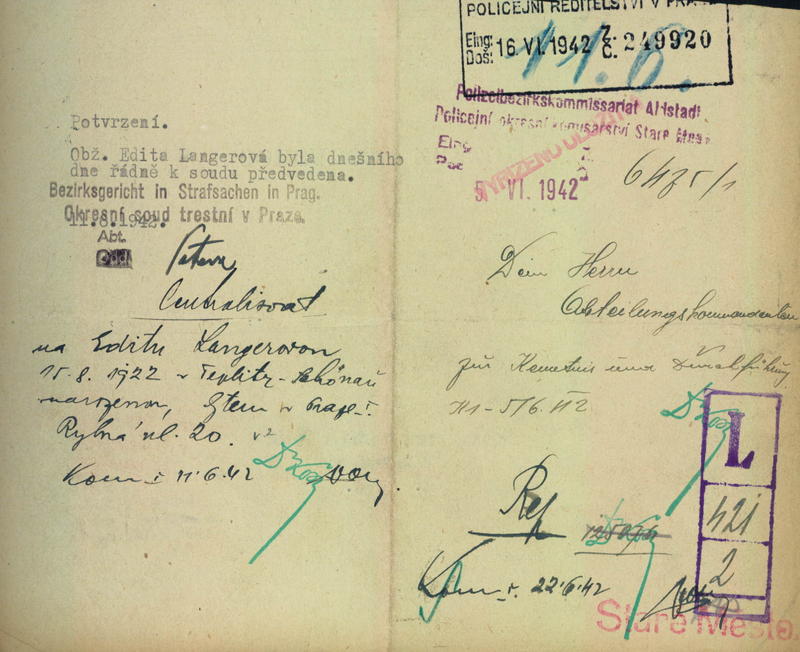 Potvrzení.
Obž. Edita Langerová byla dnešního
dne řádně k soudu předvedena.
Bezirksgericht in Strafsachen in Prag.
Okresní soud trestní v Praze.
11.6.1942.
Abt.
Odd
Centralisovat
na Editu Langerovou
15.8.1922 v Teplitz-Schönau
narozenou, bytem v Praze I.
Rybná ul. 20.
Kom. I. 11.6.42
POLICEJNÍ ŘEDITELSTVÍ V PRAZE
Eing:
Doš: 16 VI. 1942 Z. Č. 249920
11.6.
Polizeibezirkskommissariat Altstadt
Policejní okresní komisařství Staré Město
Eing
VYŘÍZENO
5 VI. 1942
6475/1
Dem Herrn
Abteilungskommandanten
zur Kenntnis und Durchführung
K1-5/6.42
L
421
2
Ref
Kom. I. 22.6.42
Staré Město.